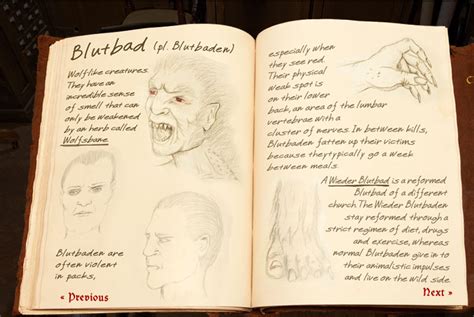 Blutbad (pl. Blutbaden)
Wolflike creatures.
They have an
incredible sense
of smell that can
only be weakened
by an herb called
Wolfsbane.
Blutbaden are
often violent
in packs,
« Previous
especially when
they see red.
Their physical
weak spot is
on their lower
back, an area of the lumbar
vertebrae with a
cluster of nerves. In between kills,
Blutbaden fatten up their victims
because theytypically go a week
between meals.
A Wieder Blutbad is a reformed
Blutbad of a different
church. The Wieder Blutbaden
stay reformed through a
strict regimen of diet, drugs
and exercise, whereas
normal Blutbaden give in to
their animalistic impulses
and live on the wild side.
Next »